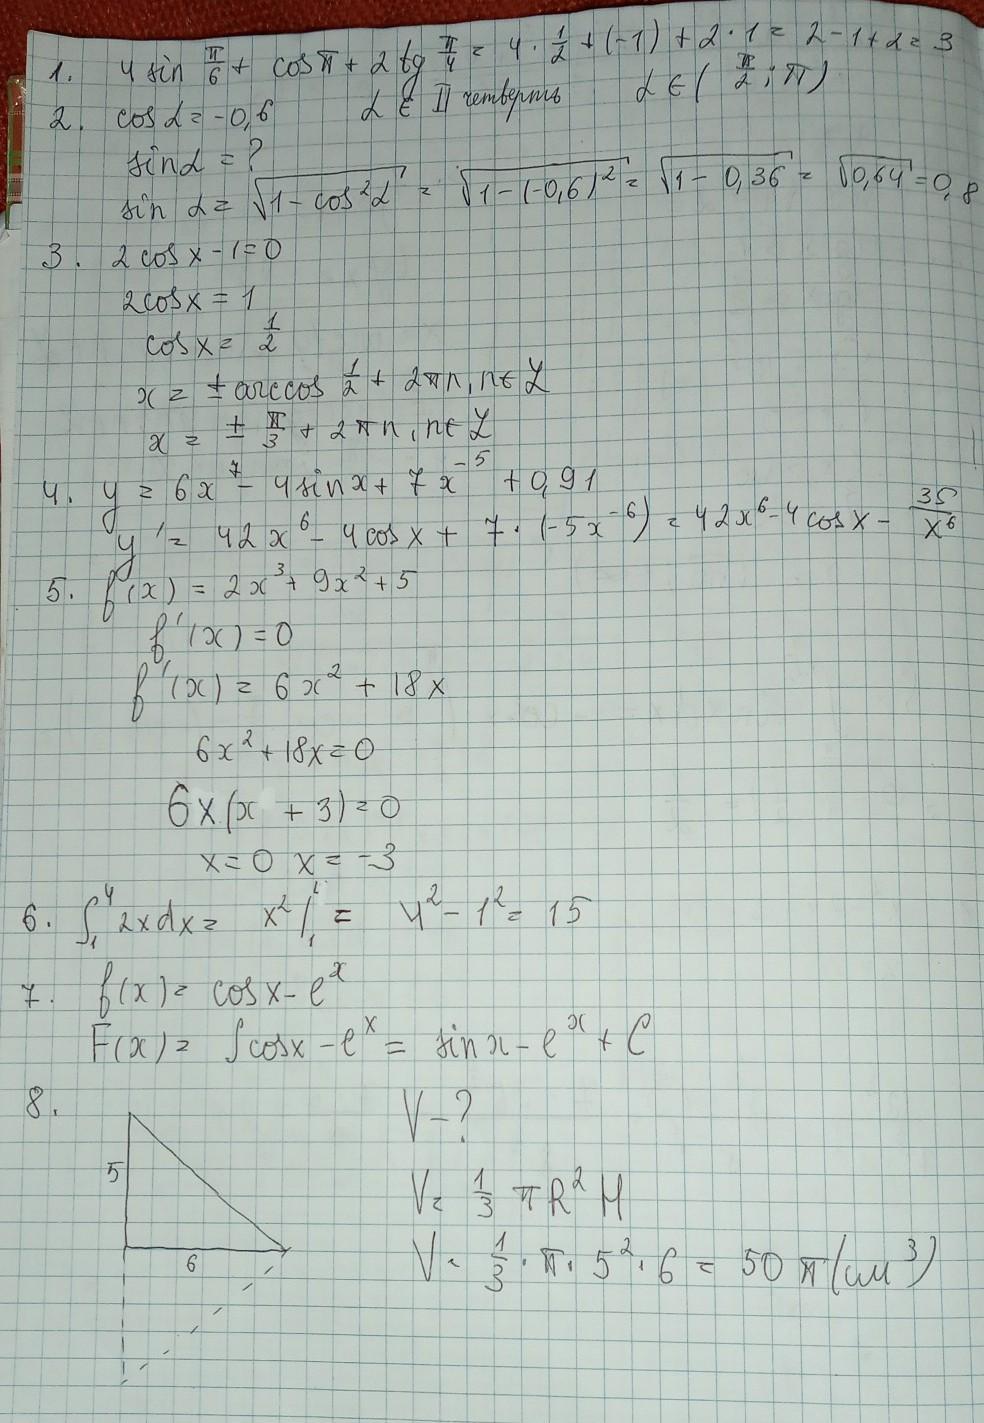 1. 4 sin π/6 + cos π + 2 tg π/4 = 4 · 1/2 + (-1) + 2 · 1 = 2 - 1 + 2 = 3
2. cos α = -0,6 α ∈ II четверть α ∈ (π/2; π)
sin α = ?
sin α = √(1 - cos²α) = √(1 - (-0,6)²) = √(1 - 0,36) = √0,64 = 0,8
3. 2 cos x - 1 = 0
2 cos x = 1
cos x = 1/2
x = ± arccos 1/2 + 2πn, n ∈ Z
x = ± π/3 + 2πn, n ∈ Z
4. y = 6x⁷ - 4 sin x + 7x⁻⁵ + 0,91
y' = 42x⁶ - 4 cos x + 7 · (-5x⁻⁶) = 42x⁶ - 4 cos x - 35/x⁶
5. f(x) = 2x³ + 9x² + 5
f'(x) = 0
f'(x) = 6x² + 18x
6x² + 18x = 0
6x(x + 3) = 0
x = 0 x = -3
6. ∫₁⁴ 2x dx = x² |₁ = 4² - 1² = 15
7. f(x) = cos x - eˣ
F(x) = ∫ cos x - eˣ = sin x - eˣ + C
8. V - ?
5
V = 1/3 π R² H
6
V = 1/3 · π · 5² · 6 = 50 π (см³)